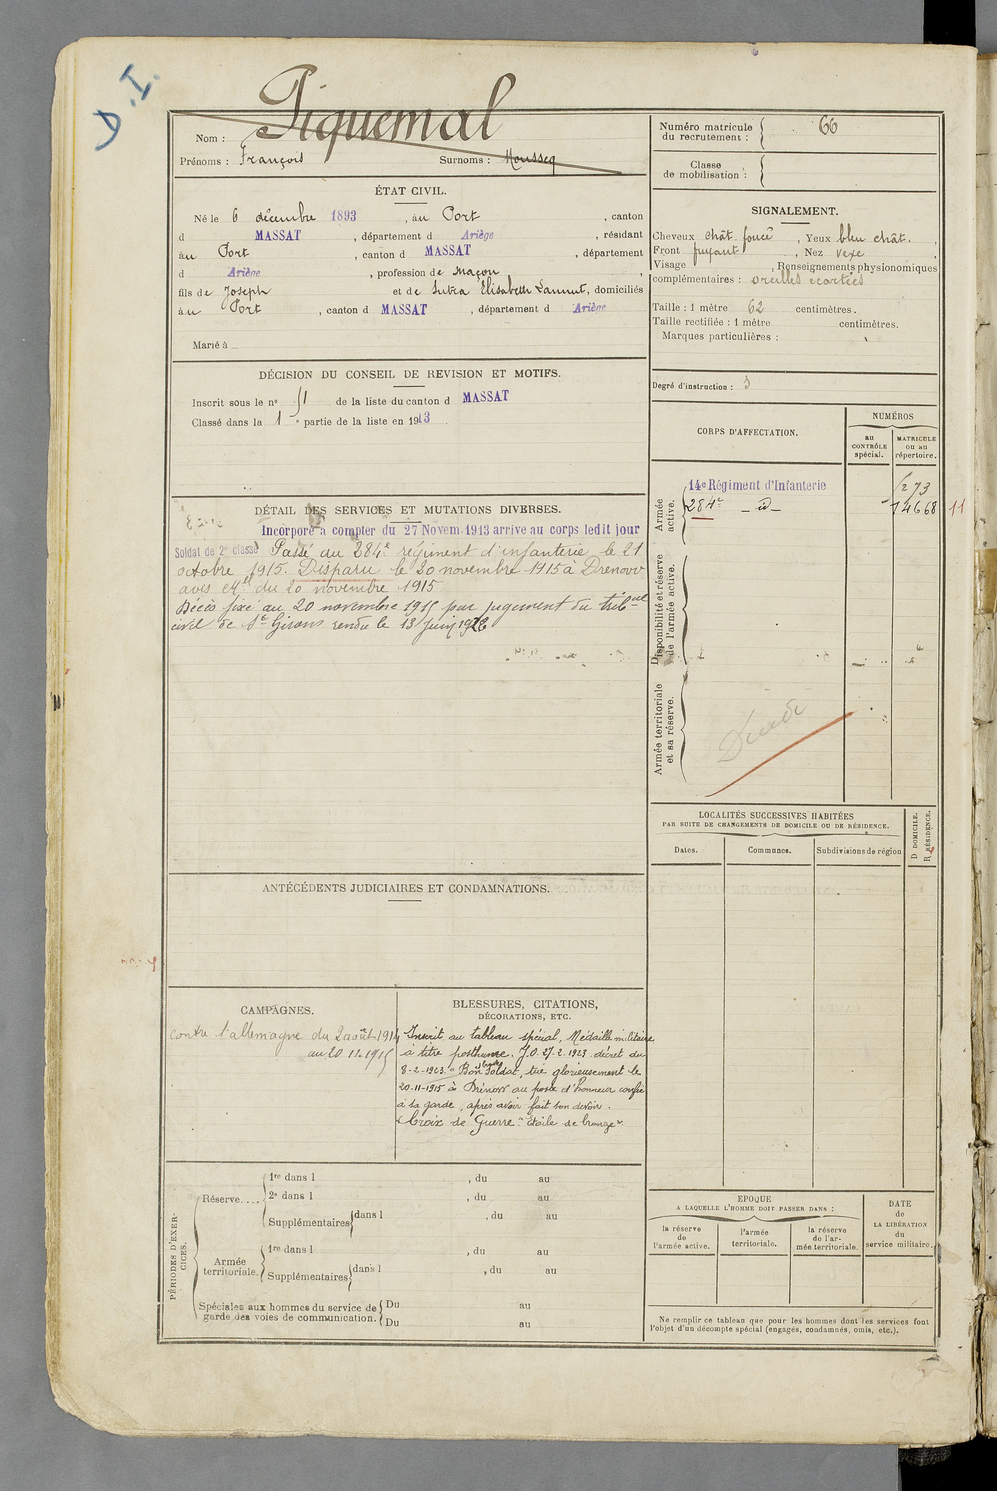 D.I.
Piquemal
Nom :
Prénoms : François Surnoms : Mousseq
ÉTAT CIVIL.
Né le 6 décembre 1893, à u Port, canton
d MASSAT, département d Ariège, résidant
à u Port, canton d MASSAT, département
d Ariège, profession de maçon,
fils de Joseph et de Sutra Elisabeth Lannut, domiciliés
à u Port, canton d MASSAT, département d Ariège
Marié à
DÉCISION DU CONSEIL DE REVISION ET MOTIFS.
Inscrit sous le no 51 de la liste du canton d MASSAT
Classé dans la 1e partie de la liste en 1913
DÉTAIL DES SERVICES ET MUTATIONS DIVERSES.
Incorporé a compter du 27 Novem. 1913 arrive au corps ledit jour
Soldat de 2e classe Passé au 284e régiment d'infanterie le 21
octobre 1915. Disparu le 20 novembre 1915 à Drenovo
avis du 20 novembre 1915
Décès fixé au 20 novembre 1915 par jugement du tribunal
civil de St Girons rendu le 13 Juin
ANTÉCÉDENTS JUDICIAIRES ET CONDAMNATIONS.
CAMPAGNES.
Contre l'allemagne du 2 août 1914
au 20 11 1915
BLESSURES, CITATIONS,
DÉCORATIONS, ETC.
Inscrit au tableau spécial, Médaille militaire
à titre posthume. J.O. 27-2-1923. décret du
8-2-1923. "Bon Soldat, tué glorieusement le
20-11-1915 à Drénovo au poste d'honneur confié
à sa garde, après avoir fait son devoir.
Croix de Guerre "étoile de bronze".
PÉRIODES D'EXERCICES.
Réserve....
1re dans l , du au
2e dans l , du au
Supplémentaires dans l , du au
Armée territoriale.
1re dans l , du au
Supplémentaires dans l , du au
Spéciales aux hommes du service de
garde des voies de communication.
Du au
Du au
Numéro matricule
du recrutement : 66
Classe
de mobilisation :
SIGNALEMENT.
Cheveux chât. foncé, Yeux bleu chât.,
Front fuyant, Nez vexe,
Visage , Renseignements physionomiques
complémentaires : oreilles écartées
Taille : 1 mètre 62 centimètres.
Taille rectifiée : 1 mètre centimètres.
Marques particulières :
Degré d'instruction : 3
CORPS D'AFFECTATION.
NUMÉROS
au
CONTRÔLE
spécial.
MATRICULE
ou au
répertoire.
Armée
active.
14e Régiment d'Infanterie
284e -d-
14668 11
Disponibilité et réserve
de l'armée active.
Armée territoriale
et sa réserve.
Décédé
LOCALITÉS SUCCESSIVES HABITÉES
PAR SUITE DE CHANGEMENTS DE DOMICILE OU DE RÉSIDENCE.
Dates. Communes. Subdivisions de région
D DOMICILE.
R RÉSIDENCE.
EPOQUE
A LAQUELLE L'HOMME DOIT PASSER DANS :
la réserve
de
l'armée active.
l'armée
territoriale.
la réserve
de l'ar-
mée territoriale.
DATE
de
LA LIBÉRATION
du
service militaire.
Ne remplir ce tableau que pour les hommes dont les services font
l'objet d'un décompte spécial (engagés, condamnés, omis, etc.).